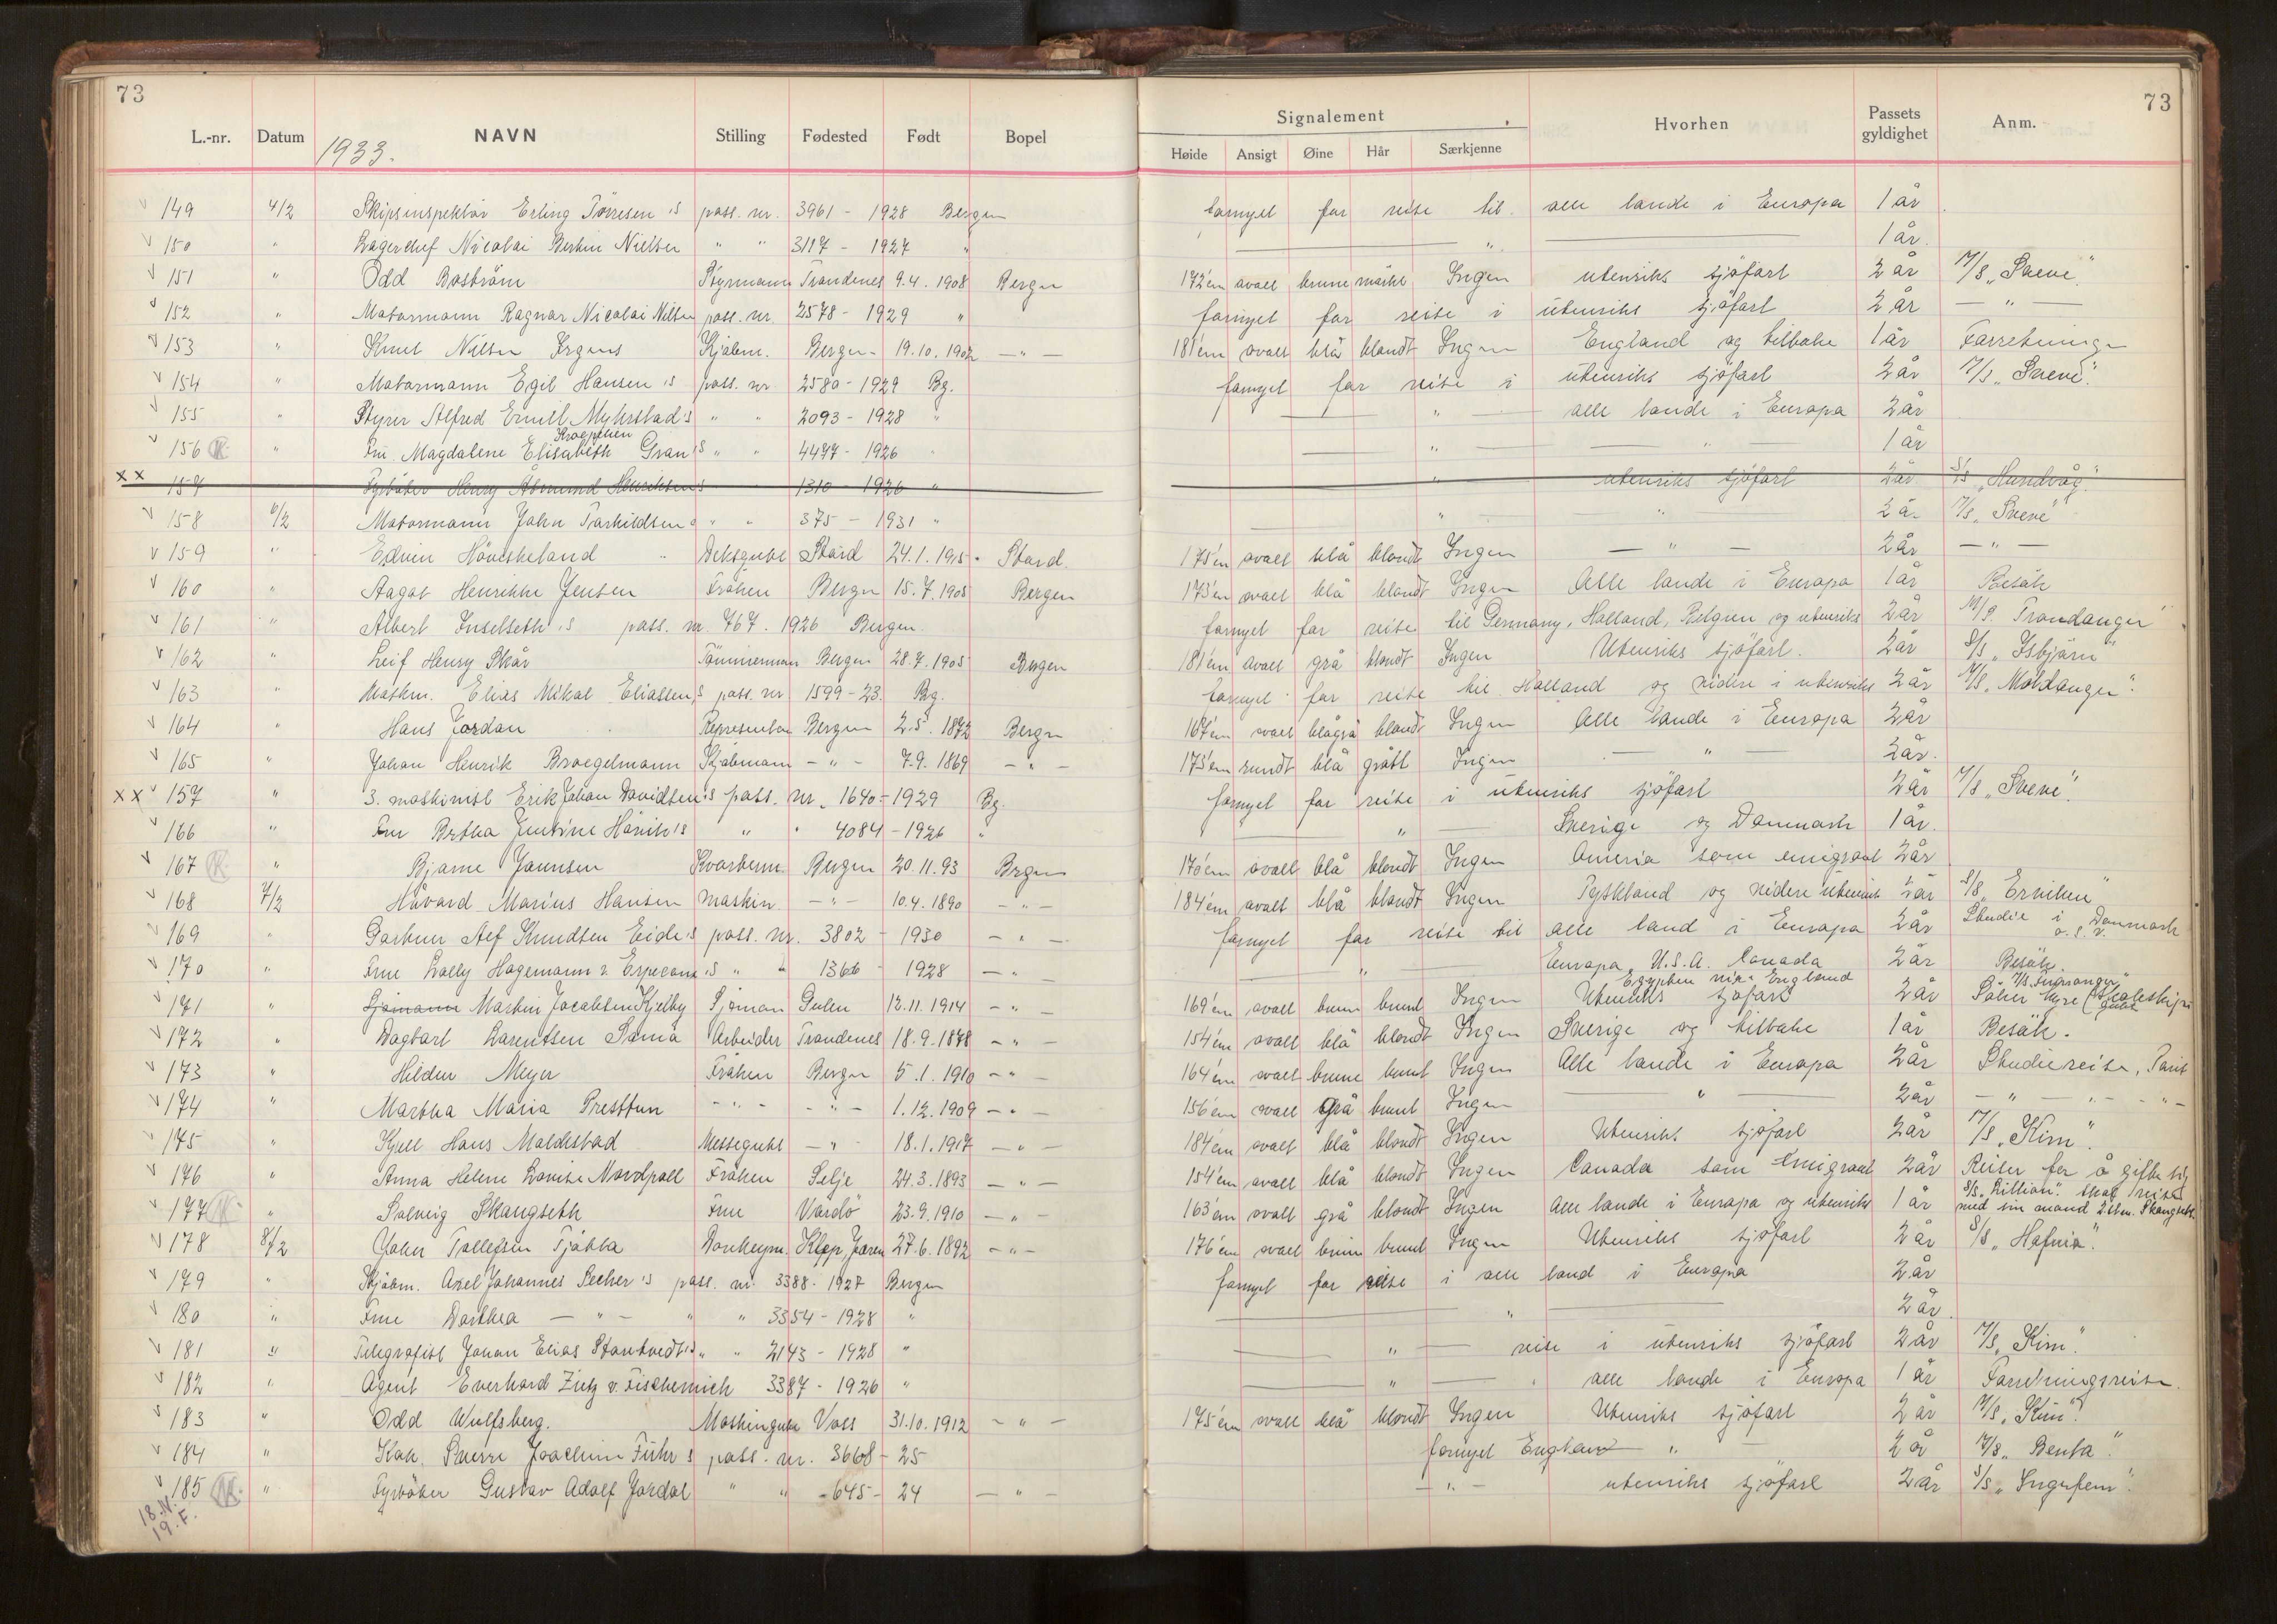 73
73
L.-nr. Datum NAVN Stilling Fødested Født Bopel
1933.
Signalement
Høide Ansigt Øine Hår Særkjenne Hvorhen Passets gyldighet Anm.
v 149 4/2 Skipsinspektør Erling Tørresen's pass. nr. 3961 - 1928 Bergen fornyet for reise til alle lande i Europa 1 år
v 150 " Lagerchef Nicolai Bertin Nielsen " " 3117 - 1927 " — " — 1 år.
v 151 " Odd Boström Styrmann Trondenes 9.4.1908 Bergen 172 cm ovalt brune mørkt Ingen utenriks sjøfart 2 år M/S „Sveve".
v 152 " Motormann Ragnar Nicolai Nilsen pass. nr. 2578 - 1929 " fornyet for reise i utenriks sjøfart 2 år — " —
v 153 " Knut Nilsen Irgens Kjøbm. Bergen 19.10.1902 — " — 181 cm ovalt blå blondt Ingen England og tilbake 1 år Forretninger
v 154 " Motormann Egil Hansen's pass. nr. 2580 - 1929 Bg. fornyet for reise i utenriks sjøfart 2 år M/S „Sveve".
v 155 " Styrer Alfred Emil Myhrstad's " " 2093 - 1928 " — " — alle lande i Europa 2 år
v 156 K " Fru Magdalene Elisabeth Kroepelien Gran's " " 4497 - 1926 " — " — " — 1 år
xx 157 Fyrbøter Henry Åsmund Henriksen's 1310 - 1926 " " utenriks sjøfart 2 år S/S „Hundvåg".
v 158 6/2 Motormann John Torkildsen's " " 375 - 1931 " — " — " 2 år M/S „Sveve"
v 159 " Edvin Høviskeland Deksgutt Stord 24.1.1915 Stord. 175 cm ovalt blå blondt Ingen — " — 2 år — " —
v 160 " Aagot Henrikke Jensen Frøken Bergen 15.7.1905 Bergen 173 cm ovalt blå blondt Ingen Alle lande i Europa 1 år Besøk
v 161 " Albert Inselseth's pass. nr. 767. 1926 Bergen. fornyet for reise til Germany, Holland, Belgien, og utenriks 2 år M/S. Trondanger"
v 162 " Leif Henry Skår Tømmermann Bergen 28.7.1905 Bergen 181 cm ovalt grå blondt Ingen Utenriks sjøfart. 2 år S/S „Isbjørn"
v 163 " Maskm. Elias Mikal Eliassen's pass. nr 1599 - 23. Bg. fornyet for reise til Holland og videre i utenriks 2 år M/S „Moldanger".
v 164 " Hans Jordan Representan Bergen 2.5.1872 Bergen 167 cm ovalt blågrå blondt Ingen Alle lande i Europa 2 år
v 165 " Johan Henrik Broegelmann Kjøbmann — " — 7.9.1869 — " — 175 cm rundt blå grått Ingen — " — 2 år.
xx v 157 " 3. maskinist Erik Johan Davidsen's pass. nr. 1640 - 1929 Bg. fornyet for reise i utenriks sjøfart 2 år M/S „Sveve".
v 166 " Fru Bertha Jentine Hövik's " " 4084 - 1926 " — " — Sverige og Danmark 1 år.
v 167 K " Bjarne Joensen Kvarterm. Bergen 20.11.93 Bergen 170 cm ovalt blå blondt Ingen America som emigrant 2 år
v 168 7/2 Håvard Marius Hansen maskin — " — 10.4.1890 — " — 184 cm ovalt blå blondt Ingen Tyskland og videre utenriks 2 år S/S „Erviken"
v 169 " Gartner Alf Knudsen Eide's pass. nr. 3802 - 1930 — " — fornyet for reise til alle land i Europa 2 år Studie i Danmark o.s.v.
v 170 " Frue Lolly Hagemann v. Erpecom's " " 1366 - 1928 — " — " — Europa, U.S.A. Canada 2 år Besøk.
Egypten via England M/S „
v 171 " Sjømann Martin Jacobsen Kjelby Sjøman Gulen 13.11.1914 — " — 169 cm ovalt brune brunt Ingen Utenriks sjøfart 2 år Søker hyre (skoleskips gutt
v 172 " Dagbart Larentsen Samä Arbeider Trondenes 18.9.1878 — " — 154 cm ovalt blå blondt Ingen Sverige og tilbake 1 år Besøk.
v 173 " Hilden Meyer Frøken Bergen 5.1.1910 — " — 164 cm ovalt brune brunt Ingen Alle lande i Europa 2 år Studiereise, Paris
v 174 " Martha Maria Presttun — " — — " — 1.12.1909 — " — 156 cm ovalt grå brunt Ingen — " — 2 år — " — " — " —
v 175 " Kjell Hans Maldestad Messegutt — " — 18.1.1917 — " — 184 cm ovalt blå blondt Ingen Utenriks sjøfart 2 år M/S „Kim".
v 176 " Anna Helene Lovise Nordpoll Frøken Selje 24.3.1893 — " — 154 cm ovalt blå blondt Ingen Canada som emigrant 2 år Reiser for å gifte sig
v 177 K " Solveig Skangseth Frue Vardø 23.9.1910 — " — 163 cm ovalt grå blondt Ingen Alle lande i Europa og utenriks 1 år S/S „Lillian". Skal reise med sin mand 2 stm. Skangseth.
v 178 8/2 John Tollefsen Tjåkta Donkeym. Klepp, Jæren 27.6.1892 — " — 176 cm ovalt brune brunt Ingen Utenriks sjøfart 2 år S/S „Hafnia".
v 179 " Kjøbm. Axel Johannes Secher's pass. nr. 3388 - 1927 Bergen fornyet for reise i alle land i Europa 2 år
v 180 " Frue Dorthea — " — " " 3354 - 1928 " — " — 2 år
v 181 " Telegrafist Johan Elias Stantvedt's " " 2143 - 1928 " — " — reise i utenriks sjøfart 2 år M/S „Kim".
v 182 " Agent Everhard Zietz v. Fischernich 3387 - 1926 " — " — alle lande i Europa 1 år Forretningsreise.
v 183 " Odd Wulfsberg. Maskingutt Voss 31.10.1912 — " — 175 cm ovalt blå blondt Ingen Utenriks sjøfart 2 år M/S „Kim".
v 184 " Kok. Sverre Joachim Führ's pass. nr. 3668 - 25 fornyet England — " — 2 år M/S „Benta".
v 185 K " Fyrbøter Gustav Adolf Jordal " " - 645 - 24 — " — — " — utenriks sjøfart 2 år S/S „Ingerfem".
18. N.
19. F.